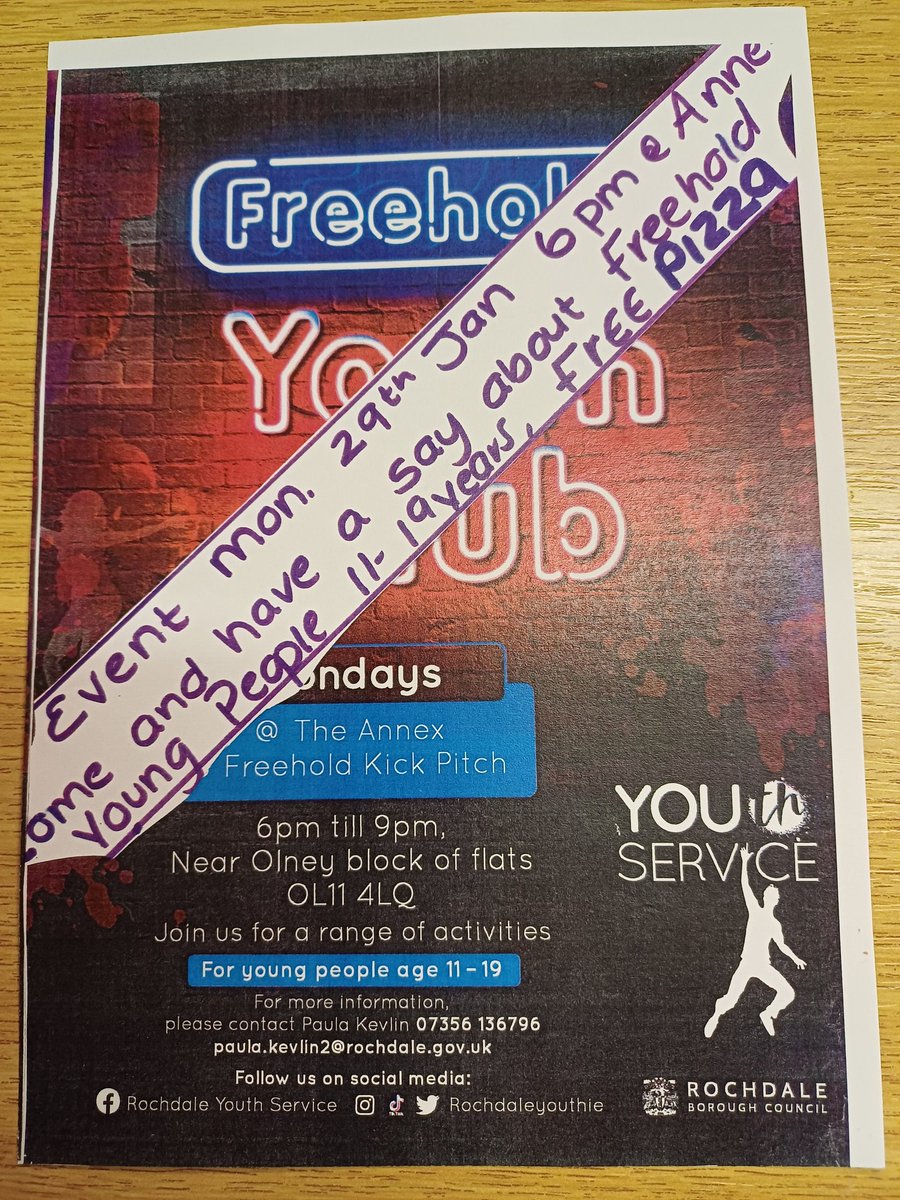 Freehol
Yo h
lub
Event mon. 29th Jan 6pm @ Anne
ome and have a say about Freehold
Young People 11-19years, FREE PIZZA
ondays
@ The Annex
Freehold Kick Pitch
6pm till 9pm,
Near Olney block of flats
OL11 4LQ
Join us for a range of activities
For young people age 11 – 19
For more information,
please contact Paula Kevlin 07356 136796
paula.kevlin2@rochdale.gov.uk
Follow us on social media:
Rochdale Youth Service TikTok Rochdaleyouthie
YOUth
SERVICE
ROCHDALE
BOROUGH COUNCIL